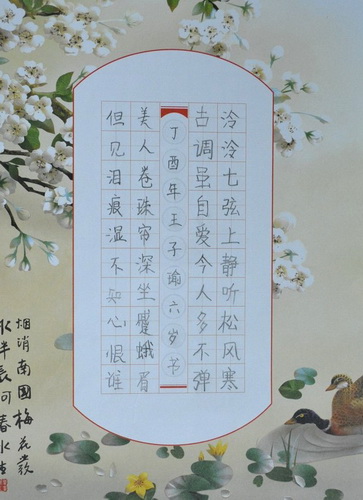 泠泠七弦上静听松风寒
古调虽自爱今人多不弹
丁酉年王子瑜六岁书
美人卷珠帘深坐蹙蛾眉
但见泪痕湿不知心恨谁
烟消南國梅花發
長河春水